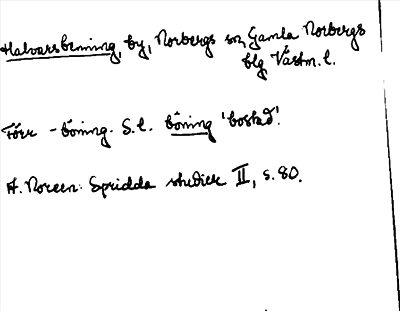 Halvarsbenning, by, Norbergs sn, Gamla Norbergs
blg Västm. l.
Förr -böning. S. l. böning 'bostad'.
A. Noreen: Spridda studier II, s. 80.